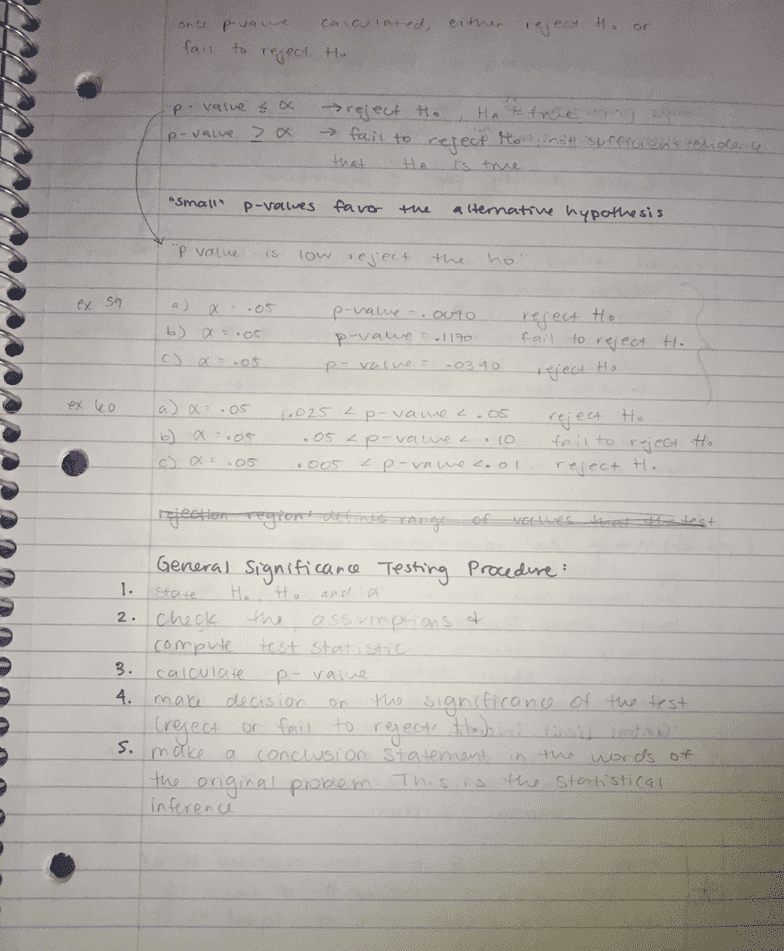 once p-value calculated, either reject H₀ or
fail to reject H₀
p-value ≤ α → reject H₀, Hₐ = true
p-value ≥ α → fail to reject H₀, not sufficient evidence
that Hₐ is true
"small" p-values favor the alternative hypothesis
"p value is low reject the ho"
ex 59 a) α = .05 p-value = .0090 reject H₀
b) α = .05 p-value = .1170 fail to reject H₀
c) α = .05 p-value = .0340 reject H₀
ex 60 a) α = .05 .025 < p-value < .05 reject H₀
b) α = .05 .05 < p-value < .10 fail to reject H₀
c) α = .05 .005 < p-value < .01 reject H₀
rejection region: defines range of values that the test
General Significance Testing Procedure:
1. state H₀, Hₐ, and α
2. check the assumptions &
compute test statistic
3. calculate p-value
4. make decision on the significance of the test
(reject or fail to reject H₀)
5. make a conclusion statement in the words of
the original problem. This is the statistical
inference